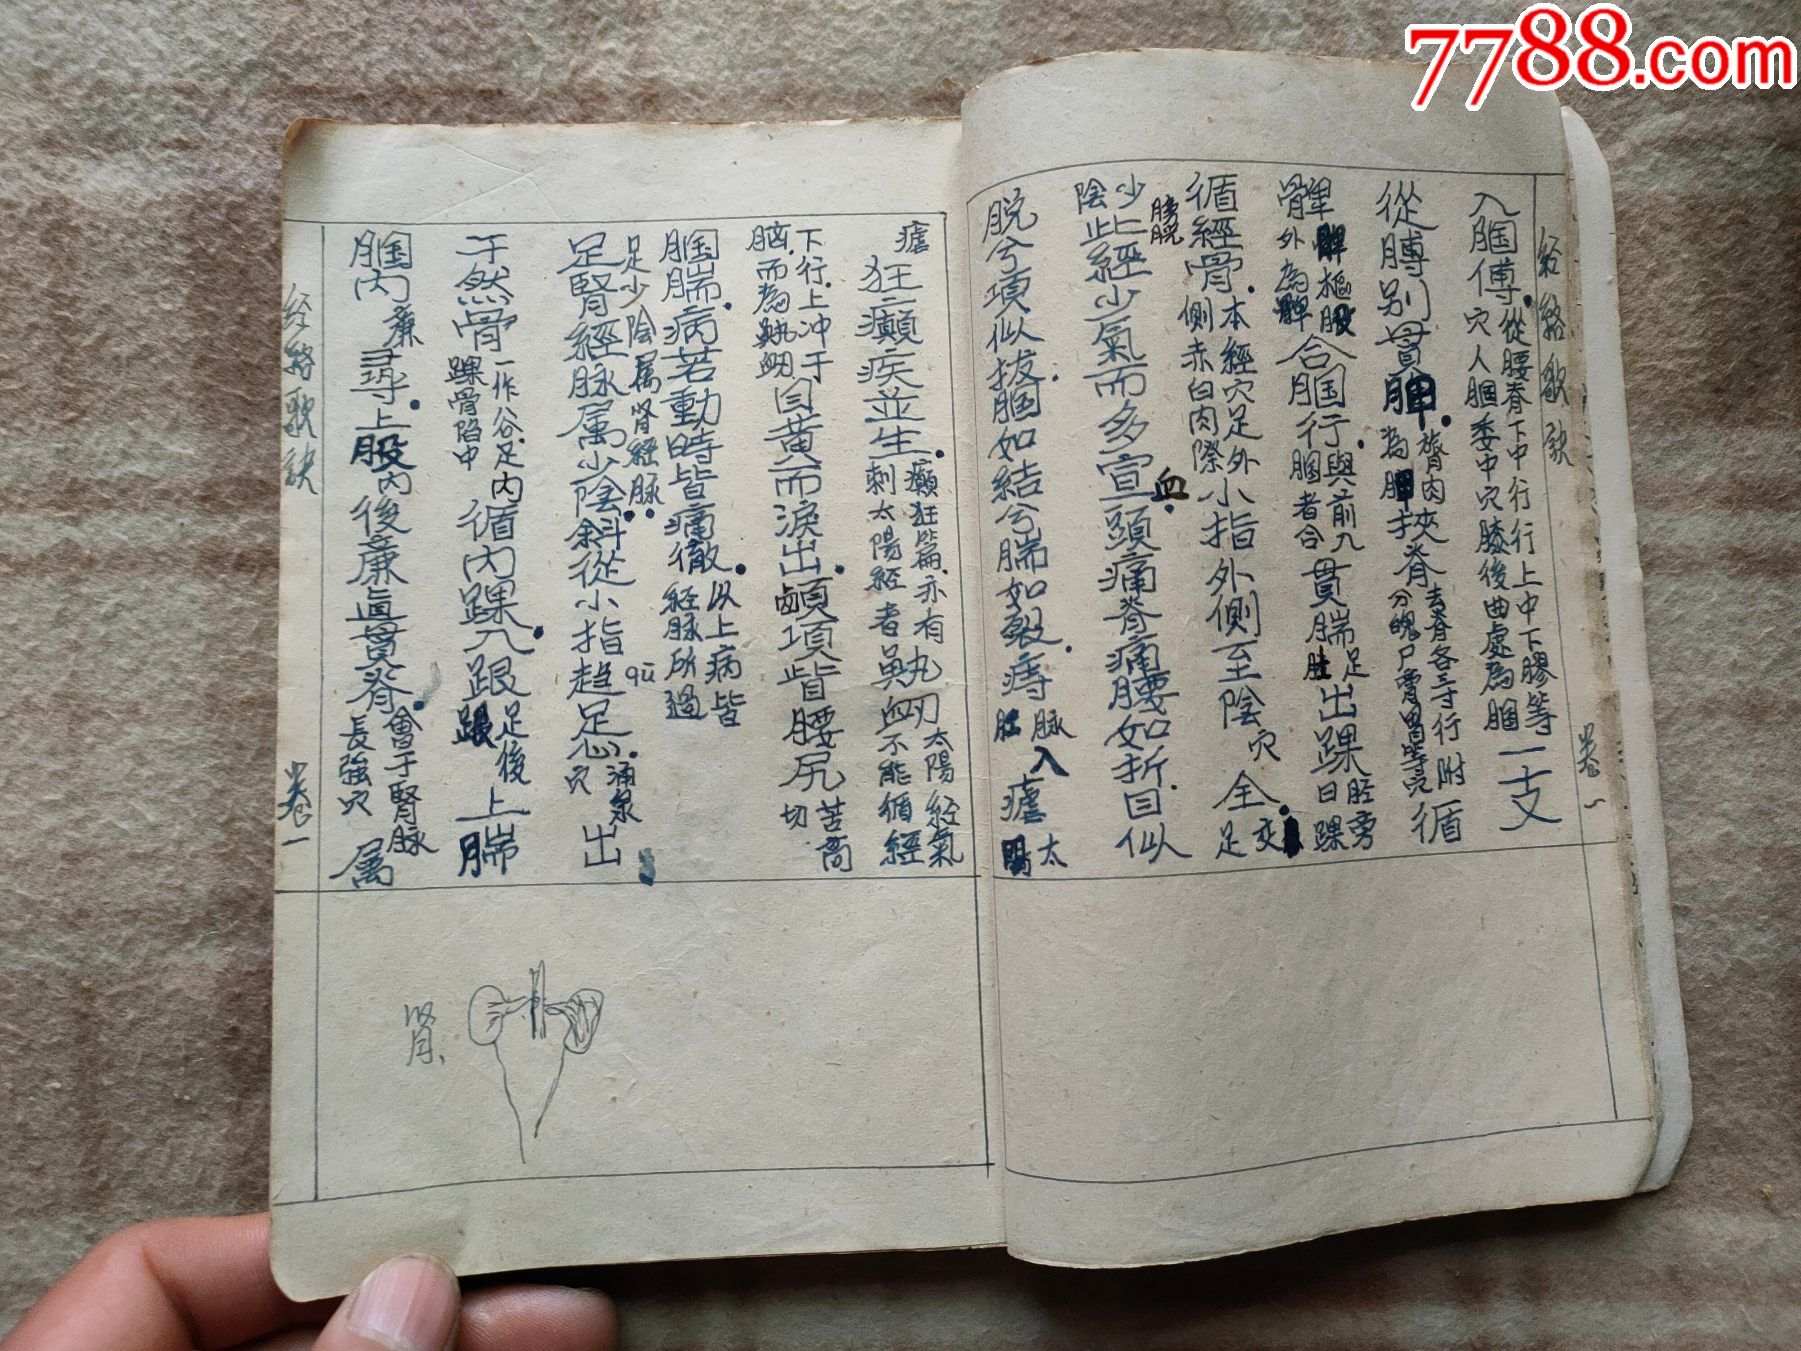 7788.com
经絡歌訣
卷一
入膕傅從腰脊下中行行上中下膠等穴人膕委中穴膝後曲處為膕一支
從膊别貫胛膂肉為胛挾脊去脊各三寸行附分魄戶膏胃等穴循
髀樞股外為髀合膕行與前入膕者合貫腨足肚出踝胫旁曰踝
循經骨本經穴足外側赤白肉際小指外側至陰穴全交足
少陰此經少氣而多血宣頭痛脊痛腰如折目似
膀胱
脱兮項似拔膕如結兮腨如裂痔脉入肛瘧太陽
瘧
狂癲疾並生癲狂篇亦有刺太陽經者鼽衄太陽經氣血不能循經
下行上冲于脑而為鼽衄目黄而淚出顱項皆腰尻苦商切
膕腨病若動時皆痛徹以上病皆經脉所過
足少陰属腎經脉
足腎經脉属少陰斜從小指趋足心涌泉穴出
qū
于然骨一作谷足内踝骨陷中循内踝入跟足後跟上腨
膕内廉尋上股内後廉直貫脊會于腎脉長強穴属
经絡歌訣
卷一
腎